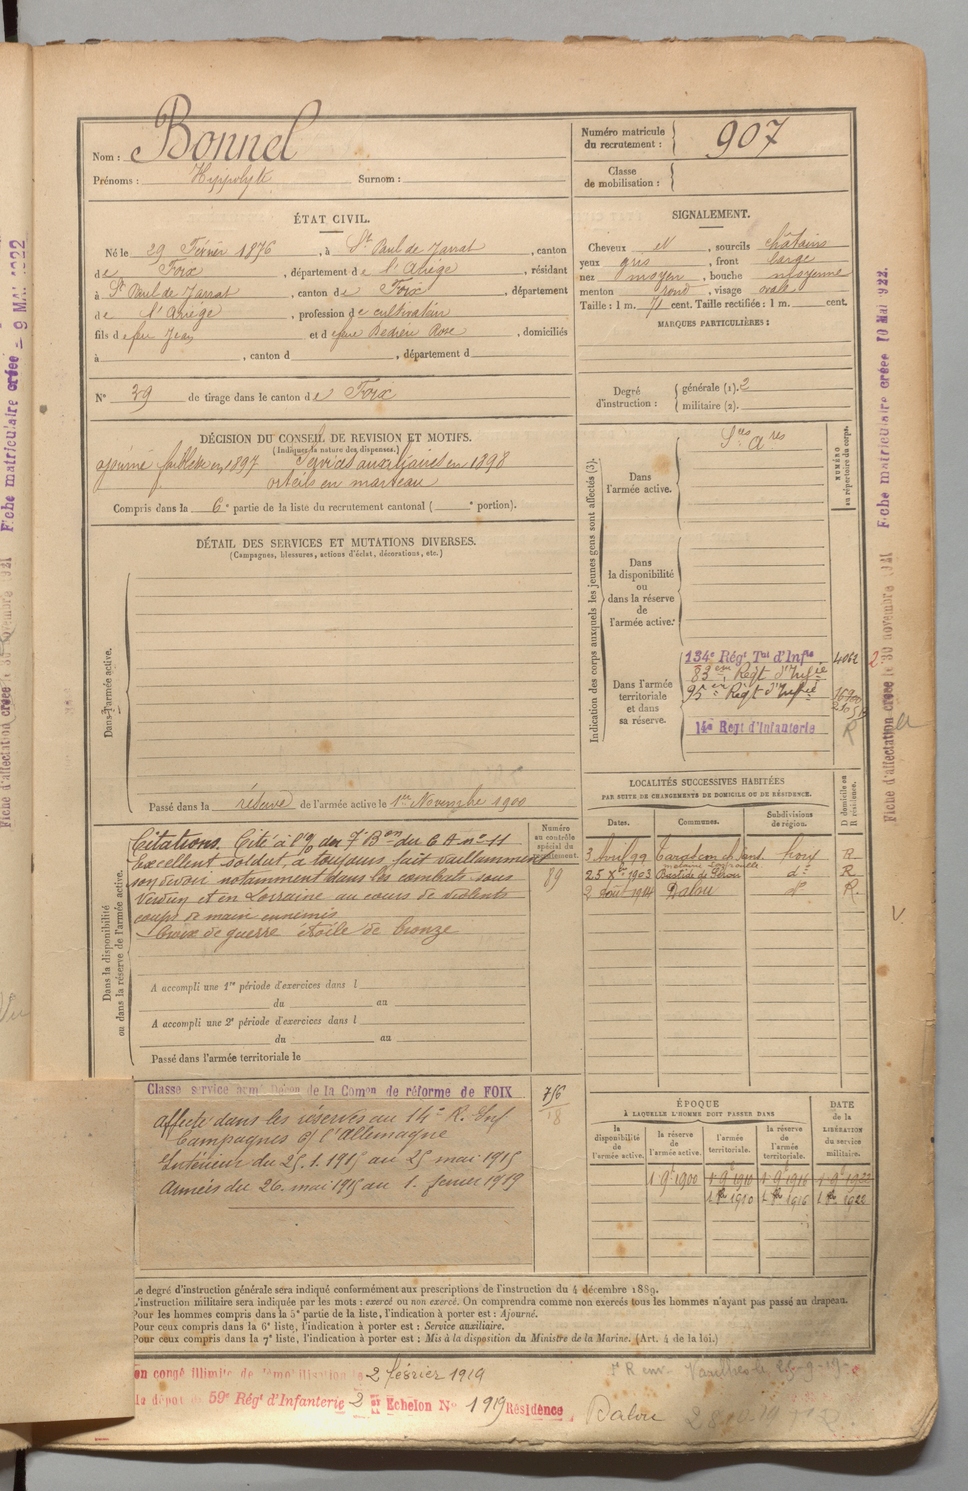 Nom : Bonnel
Prénoms : Hippolyte Surnom :
Numéro matricule du recrutement : 907
Classe de mobilisation :
ÉTAT CIVIL.
Né le 29 Février 1876, à St Paul de Jarrat, canton
de Foix, département de l'Ariège, résidant
à St Paul de Jarrat, canton de Foix, département
de l'Ariège, profession de cultivateur
fils de feu Jean et de feue Rose, domiciliés
à , canton d , département d
N° 39 de tirage dans le canton de Foix
SIGNALEMENT.
Cheveux N, sourcils châtains
yeux gris, front large
nez moyen, bouche moyenne
menton rond, visage ovale
Taille : 1 m. 71 cent. Taille rectifiée : 1 m. cent.
MARQUES PARTICULIÈRES :
Degré d'instruction : générale (1). 2
militaire (2).
DÉCISION DU CONSEIL DE REVISION ET MOTIFS.
(Indiquer la nature des dispenses.)
ajourné faiblesse en 1897 Services auxiliaires en 1898
orteils en marteau
Compris dans la 6e partie de la liste du recrutement cantonal ( e portion).
DÉTAIL DES SERVICES ET MUTATIONS DIVERSES.
(Campagnes, blessures, actions d'éclat, décorations, etc.)
Dans l'armée active.
Passé dans la réserve de l'armée active le 1er Novembre 1900
Dans la disponibilité ou dans la réserve de l'armée active.
Citations. Cité à l'o/ du 7e Bon du 6 A n° 11
Excellent soldat a toujours fait vaillamment
son devoir notamment dans les combats sous
Verdun et en Lorraine au cours de violents
coups de main ennemis
Croix de guerre étoile de bronze
Numéro au contrôle spécial du recrutement.
89
A accompli une 1re période d'exercices dans l
du au
A accompli une 2e période d'exercices dans l
du au
Passé dans l'armée territoriale le
Classe service armé Décon de la Comon de réforme de FOIX
affecté dans les réserves au 14e R. Inf
Campagnes c/ l'Allemagne
Intérieur du 25.1.1915 au 25 mai 1915
Armées du 26 mai 1915 au 1. février 1919
Indication des corps auxquels les jeunes gens sont affectés (3).
NUMÉRO au répertoire du corps.
Dans l'armée active.
Sces Ares
Dans la disponibilité ou dans la réserve de l'armée active.
Dans l'armée territoriale et dans sa réserve.
134e Régt Tal d'Infie 4062
83eme Régt d'Infie
95eme Régt d'Infie 16900
14e Regt d'Infanterie R
LOCALITÉS SUCCESSIVES HABITÉES
PAR SUITE DE CHANGEMENTS DE DOMICILE OU DE RÉSIDENCE.
Dates. Communes. Subdivisions de région. D domicile ou R résidence.
3 Avril 99 Tarascon Foix R
25 Xbre 1903 Bastide de Sérou do R
2 Août 1914 Dalou do R.
ÉPOQUE
À LAQUELLE L'HOMME DOIT PASSER DANS
la disponibilité de l'armée active. la réserve de l'armée active. l'armée territoriale. la réserve de l'armée territoriale. DATE de la LIBÉRATION du service militaire.
1 9e 1900 1 9e 1910 1 9e 1916 1 9e 1922
Le degré d'instruction générale sera indiqué conformément aux prescriptions de l'instruction du 4 décembre 1889.
L'instruction militaire sera indiquée par les mots : exercé ou non exercé. On comprendra comme non exercés tous les hommes n'ayant pas passé au drapeau.
Pour les hommes compris dans la 5e partie de la liste, l'indication à porter est : Ajourné.
Pour ceux compris dans la 6e liste, l'indication à porter est : Service auxiliaire.
Pour ceux compris dans la 7e liste, l'indication à porter est : Mis à la disposition du Ministre de la Marine. (Art. 4 de la loi.)
en congé illimité de démobilisation le 2 février 1919
dépôt de 59e Régt d'Infanterie 2 Echelon N° 1919 Résidence, Dalou
Fiche matriculaire créée 10 MAI 1922.
Fiche d'affectation créée le 30 novembre 1921
Fiche matriculaire créée - 9 MAI 1922
Fiche d'affectation créée